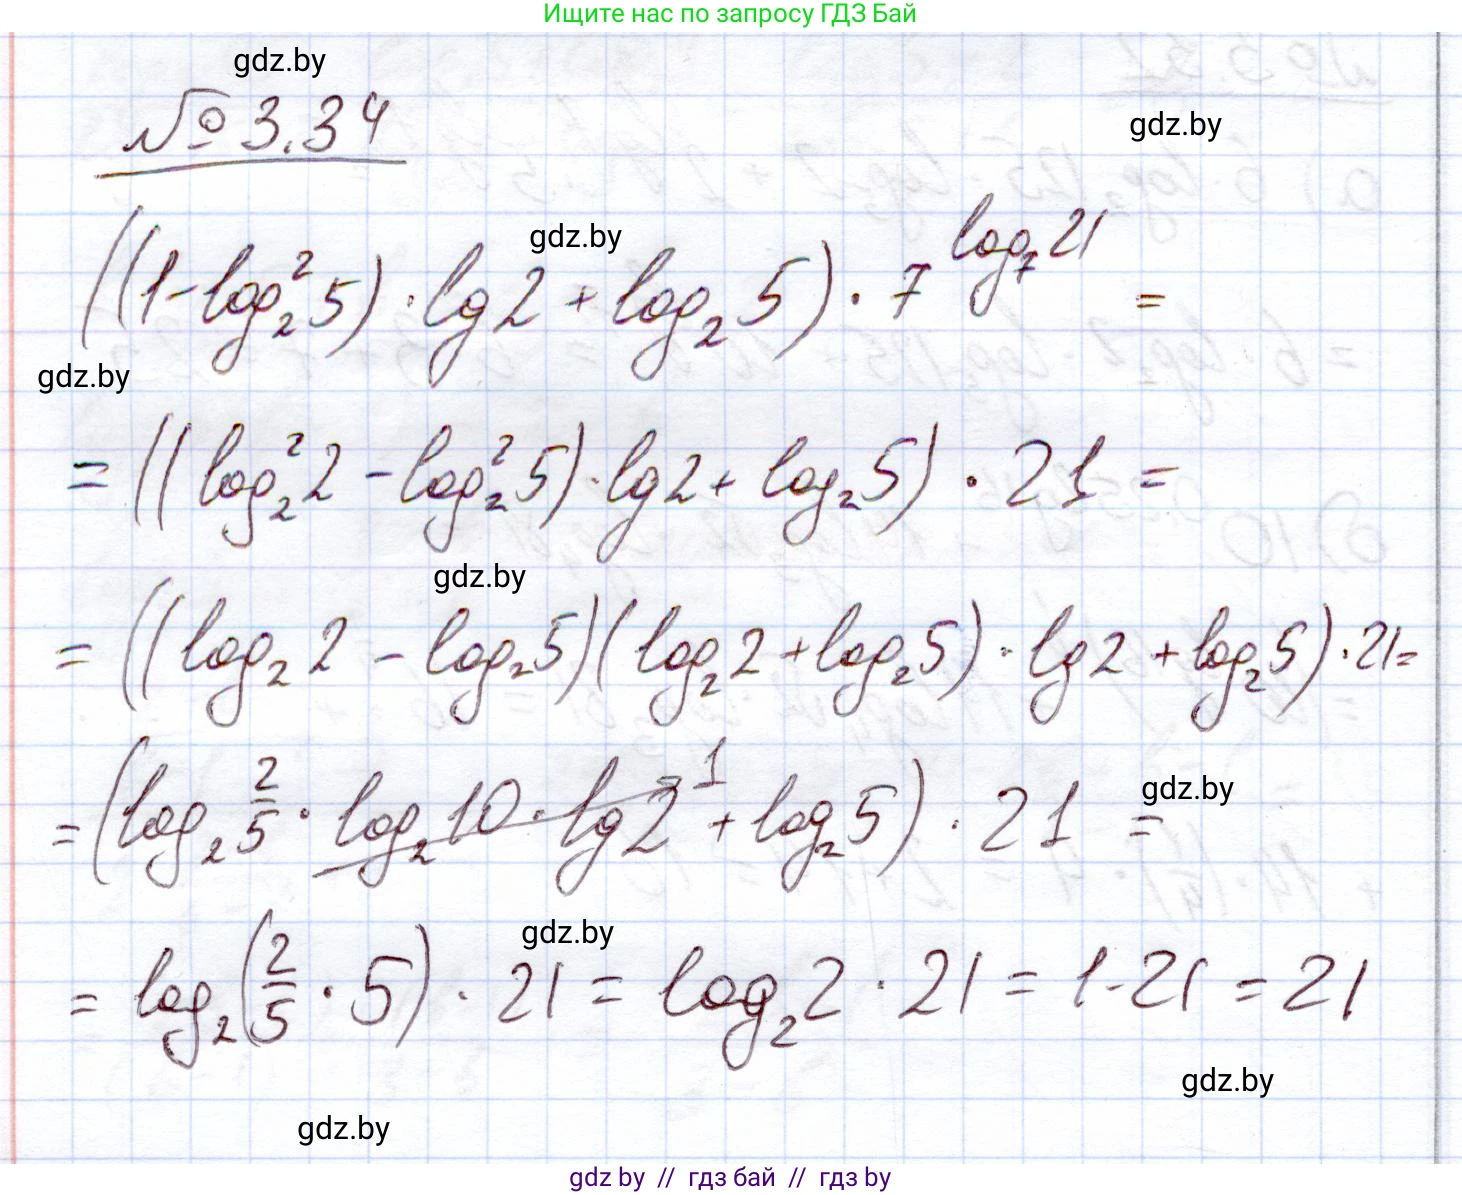 Ищите нас по запросу ГДЗ Бай
gdz.by
№ 3.34
gdz.by
gdz.by
((1-log₂²5)·lg2+log₂5)·7^log₇21 =
gdz.by
= ((log₂²2-log₂²5)·lg2+log₂5)·21=
gdz.by
= ((log₂2-log₂5)(log₂2+log₂5)·lg2+log₂5)·21=
gdz.by
= (log₂ 2/5 · log₂10·lg2 1 +log₂5)·21 =
gdz.by
= log₂(2/5 · 5)·21= log₂2·21=1·21=21
gdz.by
gdz.by
gdz by // гдз бай // гдз by